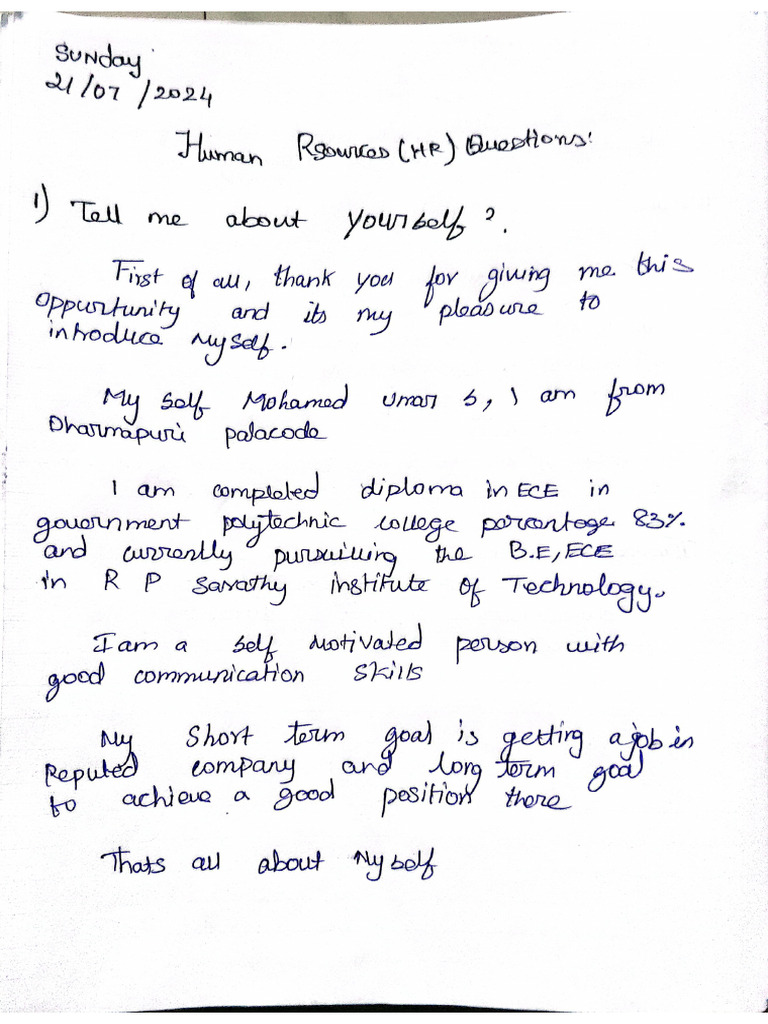 Sunday
21/07/2024
Human Rsources (HR) Questions:
1) Tell me about yourself?.
First of all, thank you for giving me this
oppurtunity and its my pleasure to
introduce Myself.
My self Mohamed umar S, I am from
Dharmapuri palacode
I am completed diploma in ECE in
government polytechnic college percentage 83%.
and currently pursuiiing the B.E, ECE
in R P Sarathy institute of Technology.
I am a self motivated person with
good communication skills
My Short term goal is getting a job in
Reputed company and long term goal
to achieve a good position there
Thats all about Myself